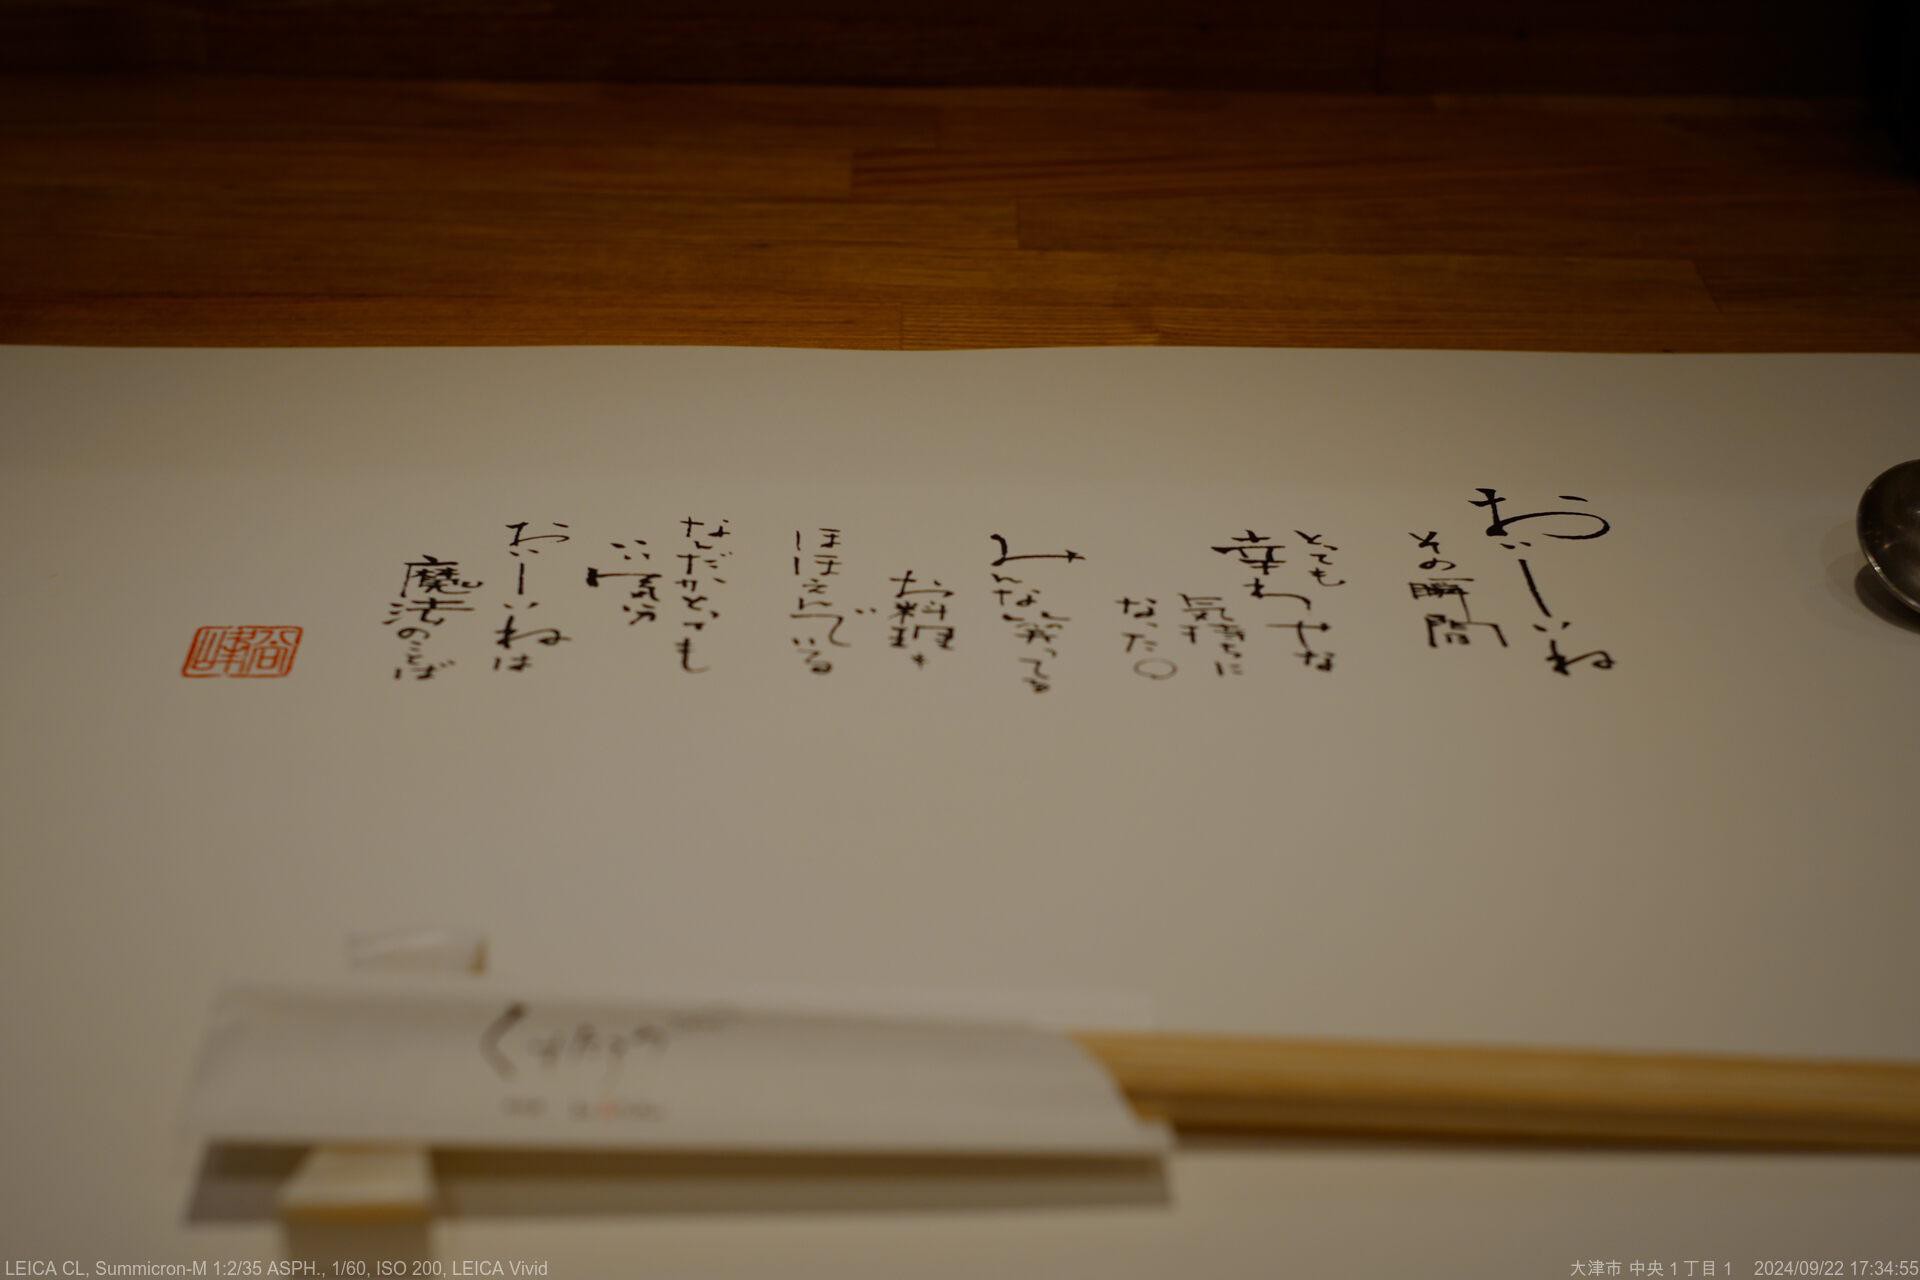 おいーいね
その瞬間
とっても
幸わせな
気持ちに
なった○
みんな笑ってる
お料理も
ほほえんでいる
なんだかとっても
いい気分
おいーいねは
魔法のことば
LEICA CL, Summicron-M 1:2/35 ASPH., 1/60, ISO 200, LEICA Vivid
大津市 中央 1 丁目 1 2024/09/22 17:34:55